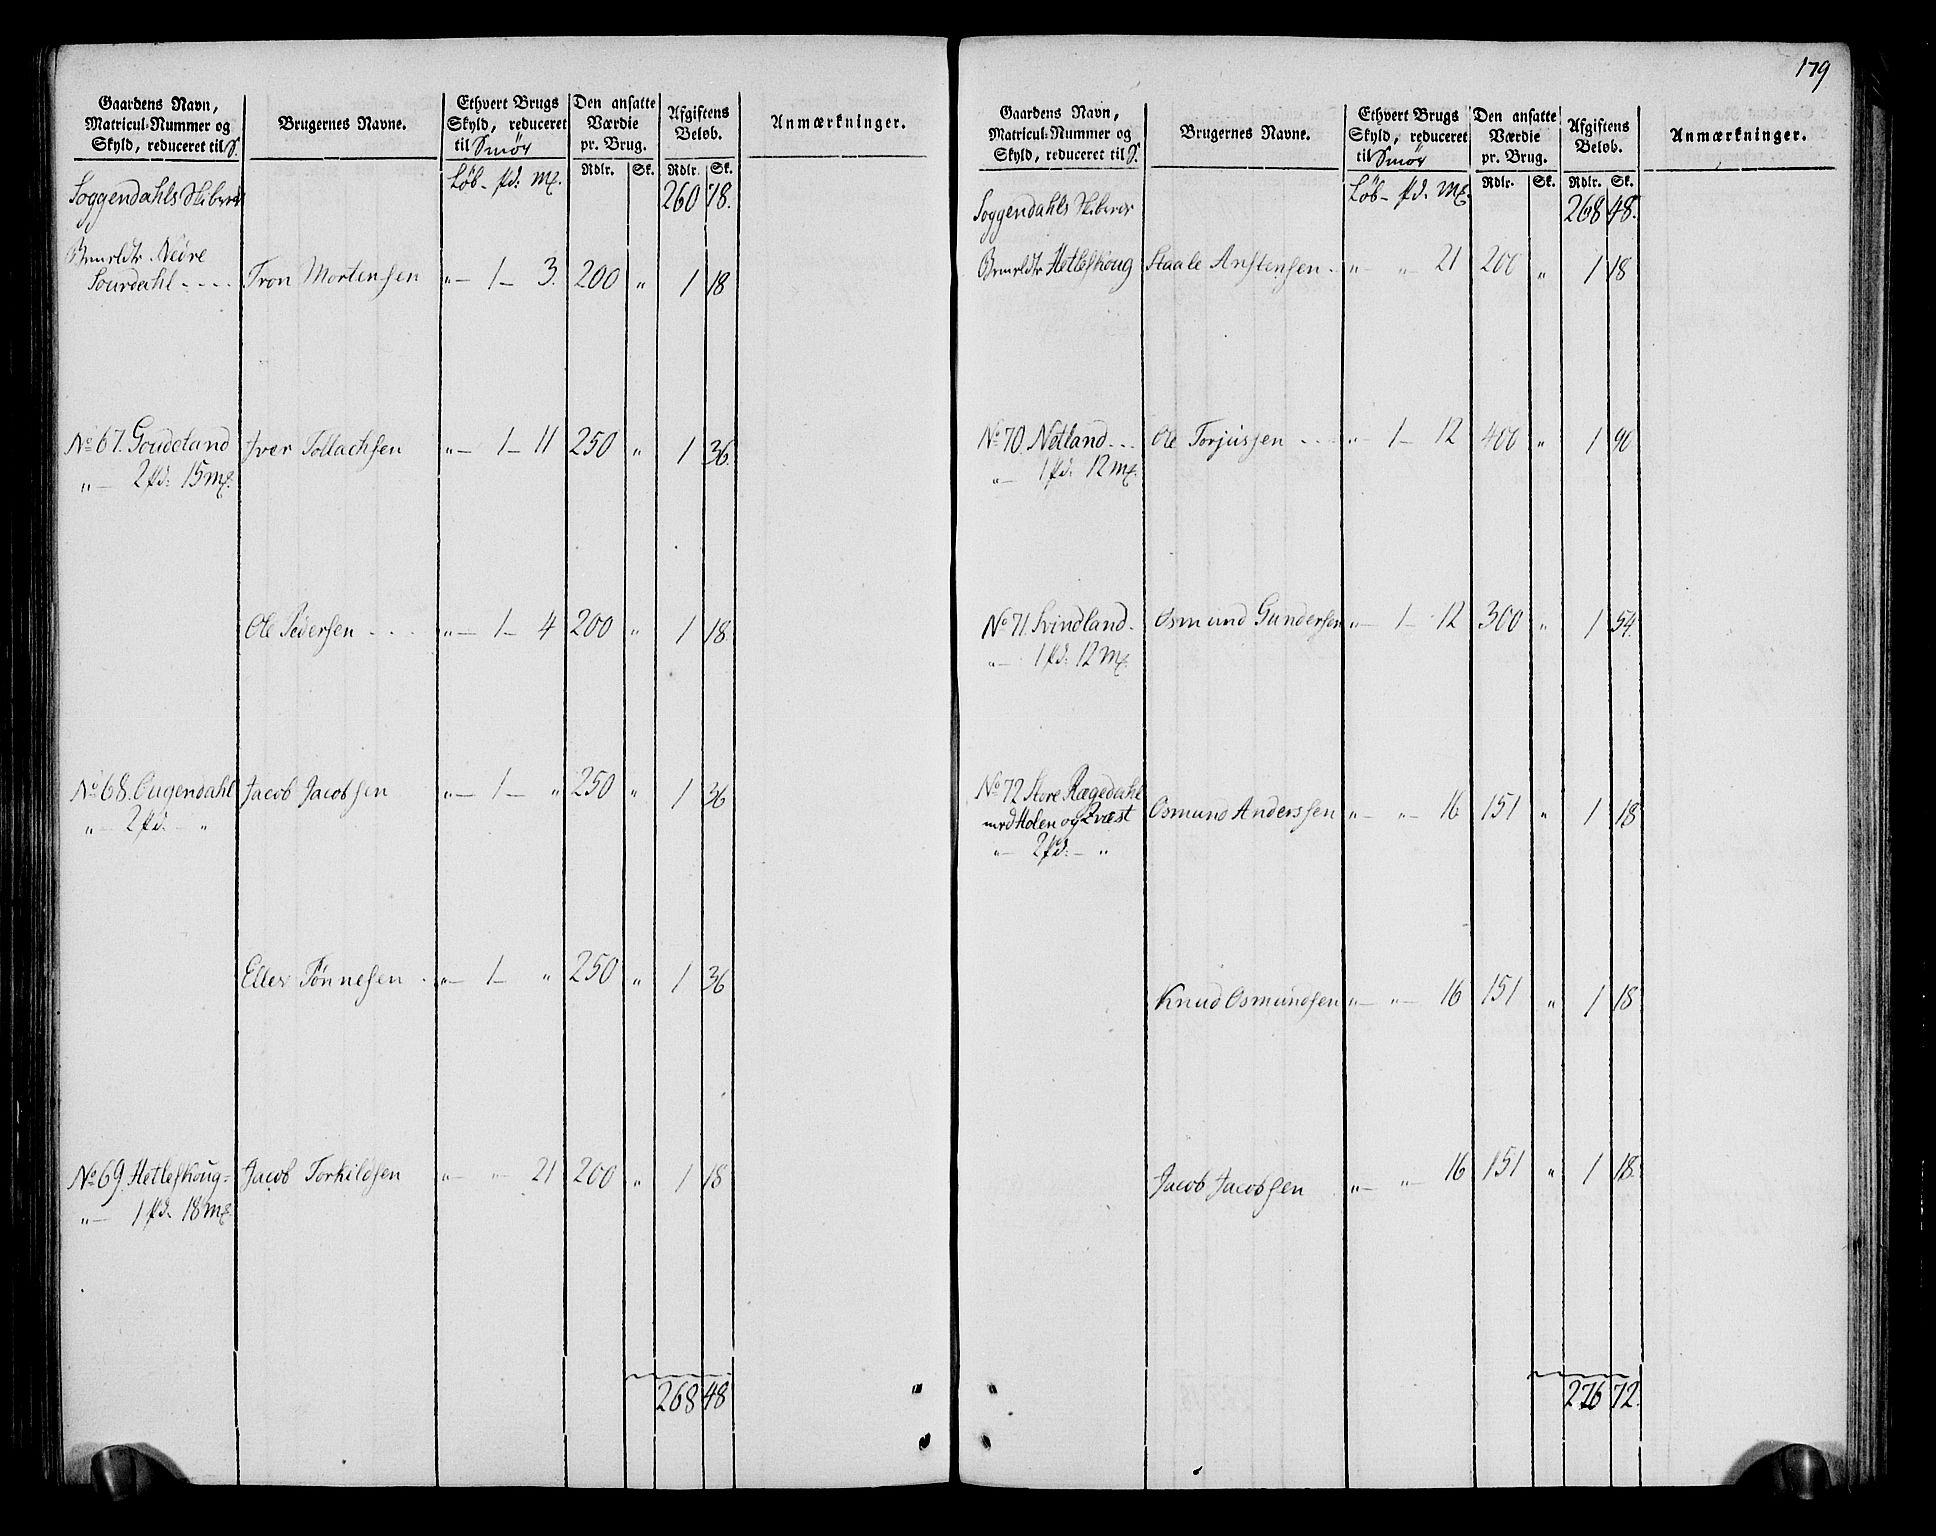 179
Gaardens Navn,
Matricul-Nummer og
Skyld, reduceret til S.
Brugernes Navne.
Ethvert Brugs
Skyld, reduceret
til Smør
Den ansatte
Værdie
pr. Brug.
Afgiftens
Beløb.
Anmærkninger.
Løb - pd: Mk.
Rdlr. Sk. Rdlr. Sk.
Soggendahls Skibrede 260 78.
Nedre
Sourdahl - - - - Tron Mortensen „ - 1 - 3. 200 „ 1 18
No 67. Goudeland Iver Tollachsen „ - 1 - 11 250 „ 1 36.
„ - 2 pd: 15 Mk.
Ole Pedersen - - - „ - 1 - 4 200 „ 1 18.
No 68. Ougendahl Jacob Jacobsen „ - 1 - „ 250 „ 1 36
„ - 2 pd: - „
Eller Tønnesen - „ - 1 - „ 250 „ 1 36
No 69. Hetleskoug - Jacob Torkildsen „ - „ - 21 200 „ 1 18
„ - 1 pd. 18 Mk.
268 48
Gaardens Navn,
Matricul-Nummer og
Skyld, reduceret til S.
Brugernes Navne.
Ethvert Brugs
Skyld, reduceret
til Smør
Den ansatte
Værdie
pr. Brug.
Afgiftens
Beløb.
Anmærkninger.
Løb - pd. Mk.
Rdlr. Sk. Rdlr. Sk.
Soggendahls 268 48.
Hetleskoug Staale Anstensen - „ - „ - 21 200 „ 1 18
No 70. Netland - - - Ole Torjussen - - - „ - 1 - 12 400 „ 1 90
„ - 1 pd: 12 Mk.
No 71. Svindland - Osmund Gundersen „ - 1 - 12 300 „ 1 54.
„ - 1 pd: 12 Mk.
No 72 Store Rægedahl
med Holen og Qvæst Osmund Anderssen „ - „ - 16 151 „ 1 18
„ - 2 pd: - „
Knud Osmundsen „ - „ - 16 151 „ 1 18
Jacob Jacobsen „ - „ - 16 151 „ 1 18.
276 72.